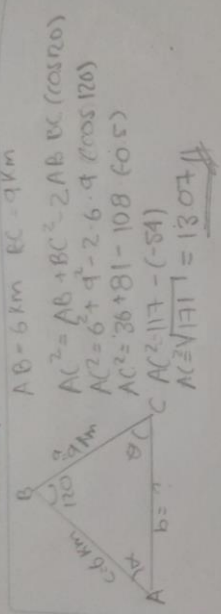 AB = 6 Km BC = 9 Km
AC² = AB + BC² - 2 AB BC (cos 120)
AC² = 6² + 9² - 2 · 6 · 9 (cos 120)
AC² = 36 + 81 - 108 (-0 5)
AC² = 117 - (-54)
AC = √171 = 13 07
B
120
c=6 km
a
9 Km
A
α
b = ?
θ
C